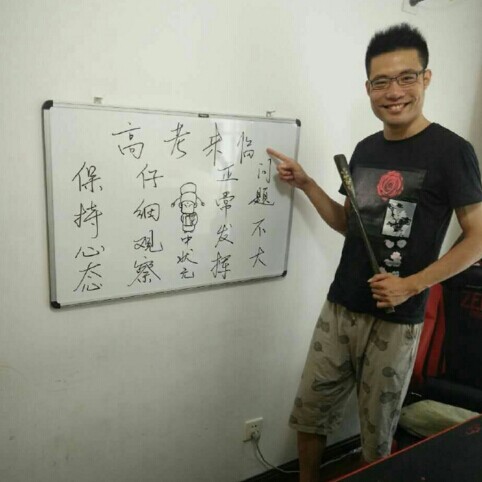 高考来临
保持心态
仔细观察
中状元
正常发挥
问题不大